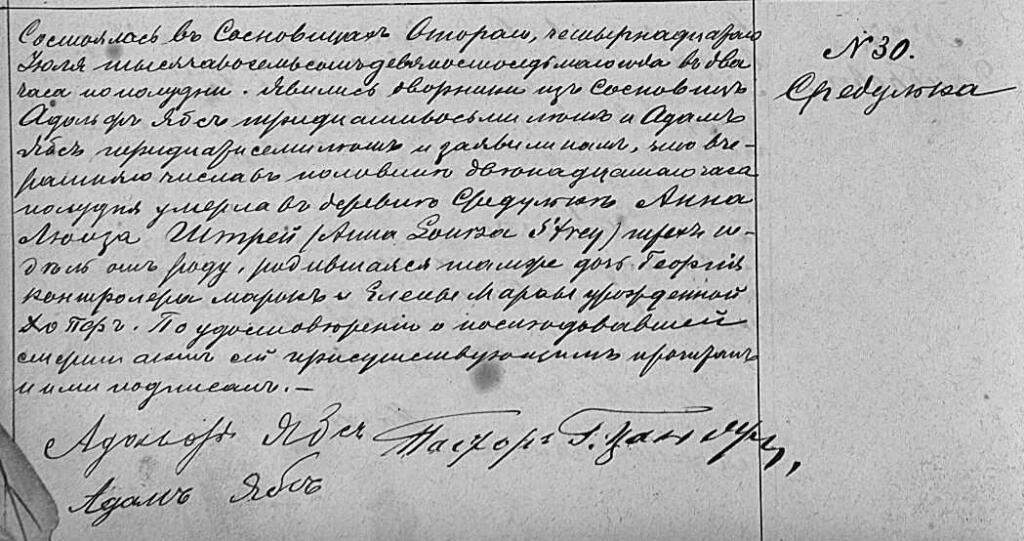 Состоялась въ Сосновицахъ Второго, четырнадцатаго
Іюля тысяча восемьсотъ девяностоседьмаго года въ два
часа по полудни. Явились дворники изъ Сосновицъ
Адольфъ Ябсъ тридцативосьми лѣтъ и Адамъ
Ябсъ тридцатисеми лѣтъ и заявили намъ, что вче-
рашняго числа въ половинѣ двѣнадцатаго часа
полудня умерла въ деревнѣ Средулькѣ Анна
Люиза Штрей (Anna Louisa Strey) трехъ не-
дѣль отъ роду, родившаяся тамже дочь Георгія
контролера марокъ и Елены Марѳы урожденной
По удостовѣреніи о послѣдовавшей
смерти актъ сей присутствующимъ прочитанъ
и ими подписанъ. —
Адольфъ Ябсъ Пасторъ Г.
Адамъ Ябсъ
N 30.
Средулька